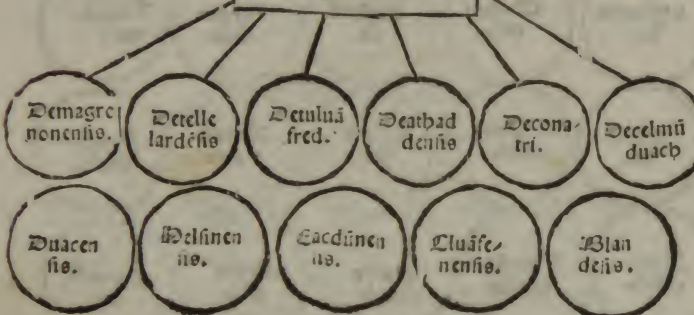 Demagre
nonensis.
Detelle
lardēsis
Detuluā
fred.
Deathad
densis
Decona-
tri.
Decelmū
duach
Duacen
sis.
Helfinen
sis.
Eacdūnen
sis.
Cluāfe-
nensis.
Blan
dēsis.